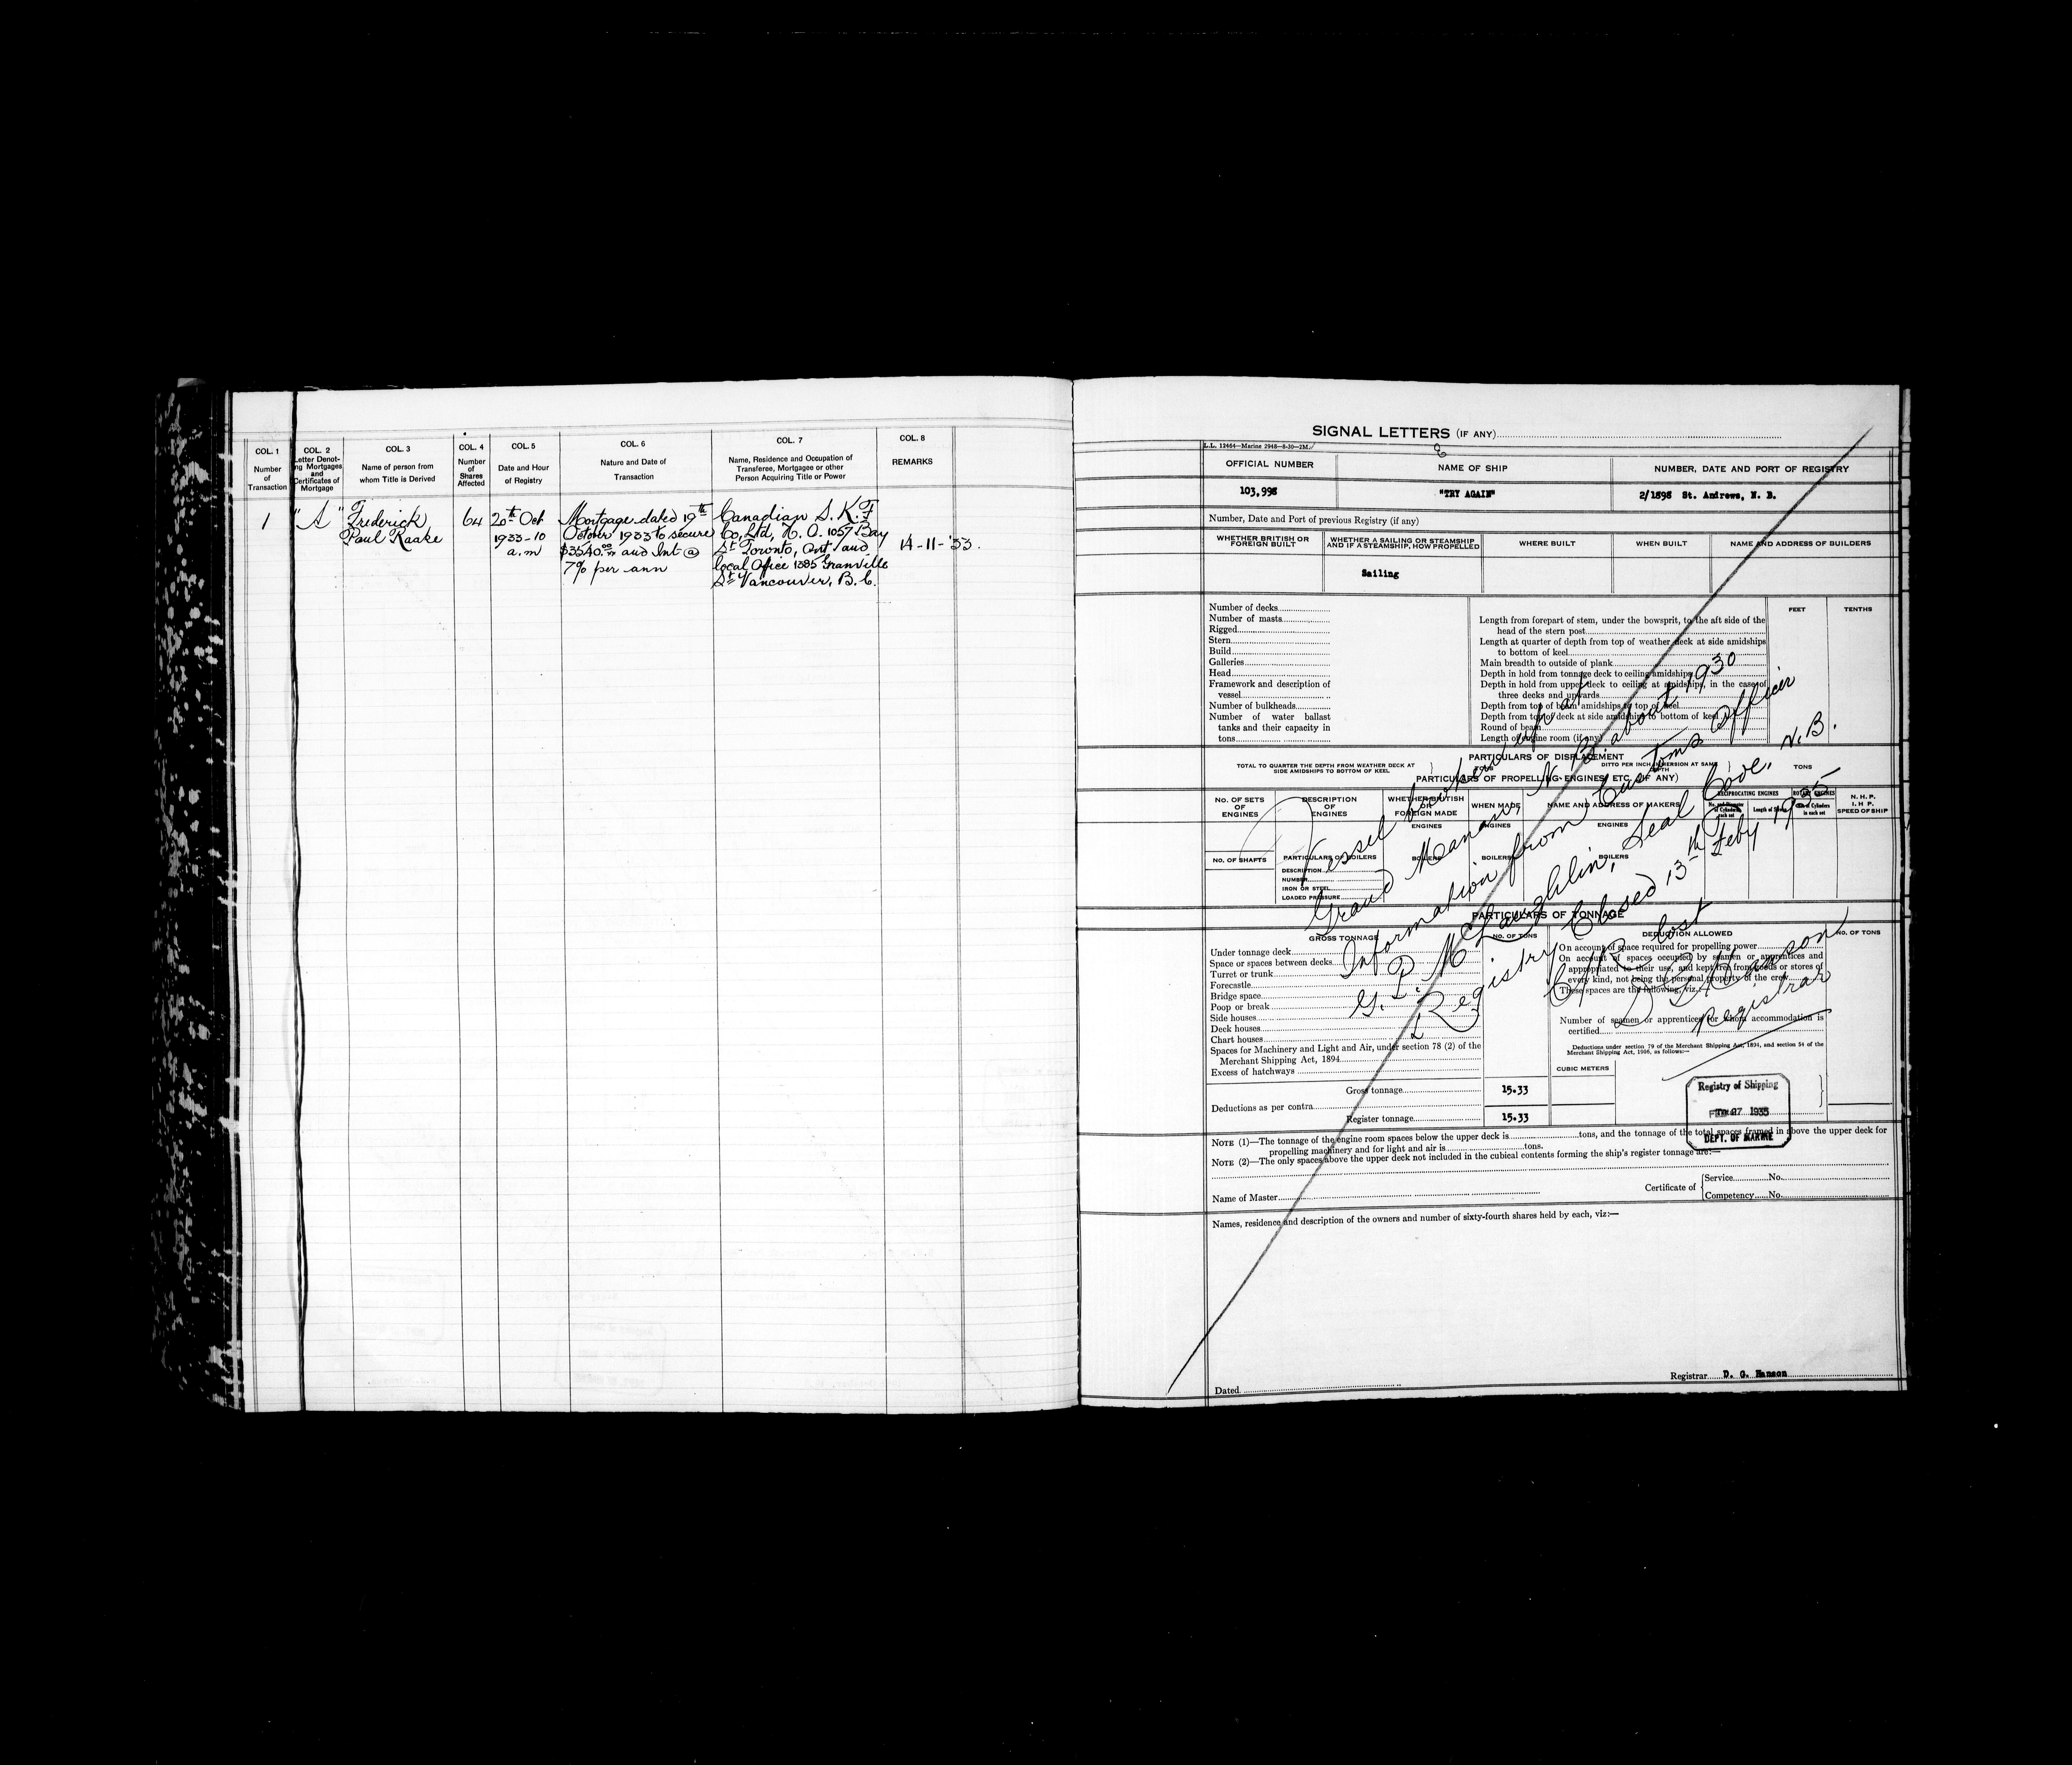 COL. 1
Number
of
Transaction
COL. 2
Letter Denot-
ng Mortgages
and
Certificates of
Mortgage
COL. 3
Name of person from
whom Title is Derived
COL. 4
Number
of
Shares
Affected
COL. 5
Date and Hour
of Registry
COL. 6
Nature and Date of
Transaction
COL. 7
Name, Residence and Occupation of
Transferee, Mortgagee or other
Person Acquiring Title or Power
COL. 8
REMARKS
1
"A"
Frederick
Paul Raake
64
20th Oct
1933-10
a.m
Mortgage dated 19th
October 1933 to secure
$3540.00 and Int @
7% per ann
Canadian S. K. F
Co, Ltd, H. O. 1057 Bay
St Toronto, Ont and
local Office 1385 Granville
St Vancouver, B. C.
14-11-'33.
SIGNAL LETTERS (IF ANY)
L.L. 12464—Marine 2948—8-30—2M.
OFFICIAL NUMBER
NAME OF SHIP
NUMBER, DATE AND PORT OF REGISTRY
103,998
"TRY AGAIN"
2/1898 St. Andrews, N. B.
Number, Date and Port of previous Registry (if any)
WHETHER BRITISH OR
FOREIGN BUILT
WHETHER A SAILING OR STEAMSHIP
AND IF A STEAMSHIP, HOW PROPELLED
WHERE BUILT
WHEN BUILT
NAME AND ADDRESS OF BUILDERS
Sailing
Number of decks
Number of masts
Rigged
Stern
Build
Galleries
Head
Framework and description of
vessel
Number of bulkheads
Number of water ballast
tanks and their capacity in
tons
FEET
TENTHS
Length from forepart of stem, under the bowsprit, to the aft side of the
head of the stern post
Length at quarter of depth from top of weather deck at side amidships
to bottom of keel
Main breadth to outside of plank
Depth in hold from tonnage deck to ceiling amidships
Depth in hold from upper deck to ceiling at amidships, in the case of
three decks and upwards
Depth from top of beam amidships to top of keel
Depth from top of deck at side amidships to bottom of keel
Round of beam
Length of engine room (if any)
PARTICULARS OF DISPLACEMENT
TOTAL TO QUARTER THE DEPTH FROM WEATHER DECK AT
SIDE AMIDSHIPS TO BOTTOM OF KEEL
TONS
DITTO PER INCH IMMERSION AT SAME
DEPTH
TONS
PARTICULARS OF PROPELLING ENGINES, ETC. (IF ANY)
No. OF SETS
OF
ENGINES
DESCRIPTION
OF
ENGINES
WHETHER BRITISH
OR
FOREIGN MADE
WHEN MADE
NAME AND ADDRESS OF MAKERS
RECIPROCATING ENGINES
ROTARY ENGINES
No. and Diameter
of Cylinders in
each set
Length of Stroke
No. of Cylinders
in each set
N. H. P.
I. H. P.
SPEED OF SHIP
ENGINES
ENGINES
ENGINES
No. OF SHAFTS
PARTICULARS OF BOILERS
BOILERS
BOILERS
BOILERS
DESCRIPTION
NUMBER
IRON OR STEEL
LOADED PRESSURE
Vessel broken up at
Grand Manan, N. B. about 1930
Information from Customs Officer
G. P. McLaughlin, Seal Cove, N. B.
Registry Closed 13th Feby 1935
C/R lost
D G Hanson
Registrar
PARTICULARS OF TONNAGE
GROSS TONNAGE
NO. OF TONS
DEDUCTION ALLOWED
NO. OF TONS
Under tonnage deck
Space or spaces between decks
Turret or trunk
Forecastle
Bridge space
Poop or break
Side houses
Deck houses
Chart houses
Spaces for Machinery and Light and Air, under section 78 (2) of the
Merchant Shipping Act, 1894
Excess of hatchways
Gross tonnage
15.33
Deductions as per contra
Register tonnage
15.33
On account of space required for propelling power
On account of spaces occupied by seamen or apprentices and
appropriated to their use, and kept free from goods or stores of
every kind, not being the personal property of the crew
These spaces are the following, viz.:—
Number of seamen or apprentices for whom accommodation is
certified
Deductions under section 79 of the Merchant Shipping Act, 1894, and section 54 of the
Merchant Shipping Act, 1906, as follows:—
CUBIC METERS
Registry of Shipping
FEB 27 1935
DEPT. OF MARINE
NOTE (1)—The tonnage of the engine room spaces below the upper deck is tons, and the tonnage of the total spaces framed in above the upper deck for
propelling machinery and for light and air is tons.
NOTE (2)—The only spaces above the upper deck not included in the cubical contents forming the ship's register tonnage are:—
Name of Master
Certificate of
Service No.
Competency No.
Names, residence and description of the owners and number of sixty-fourth shares held by each, viz:—
Dated
Registrar D. G. Hanson